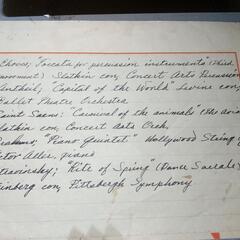 Chavez; "Toccata for percussion instruments" (Third
movement) Slatkin con; Concert Arts Percussion
Antheil; "Capital of the World" Levine con;
Ballet Theatre Orchestra
Saint Saens: "Carnival of the animals"
Slatkin con, Concert Arts Orch.
Brahms; "Piano Quintet" Hollywood String
Victor Aller, piano
Stravinsky; "Rite of Spring" (Danse Sacrale)
Steinberg con, Pittsburgh Symphony